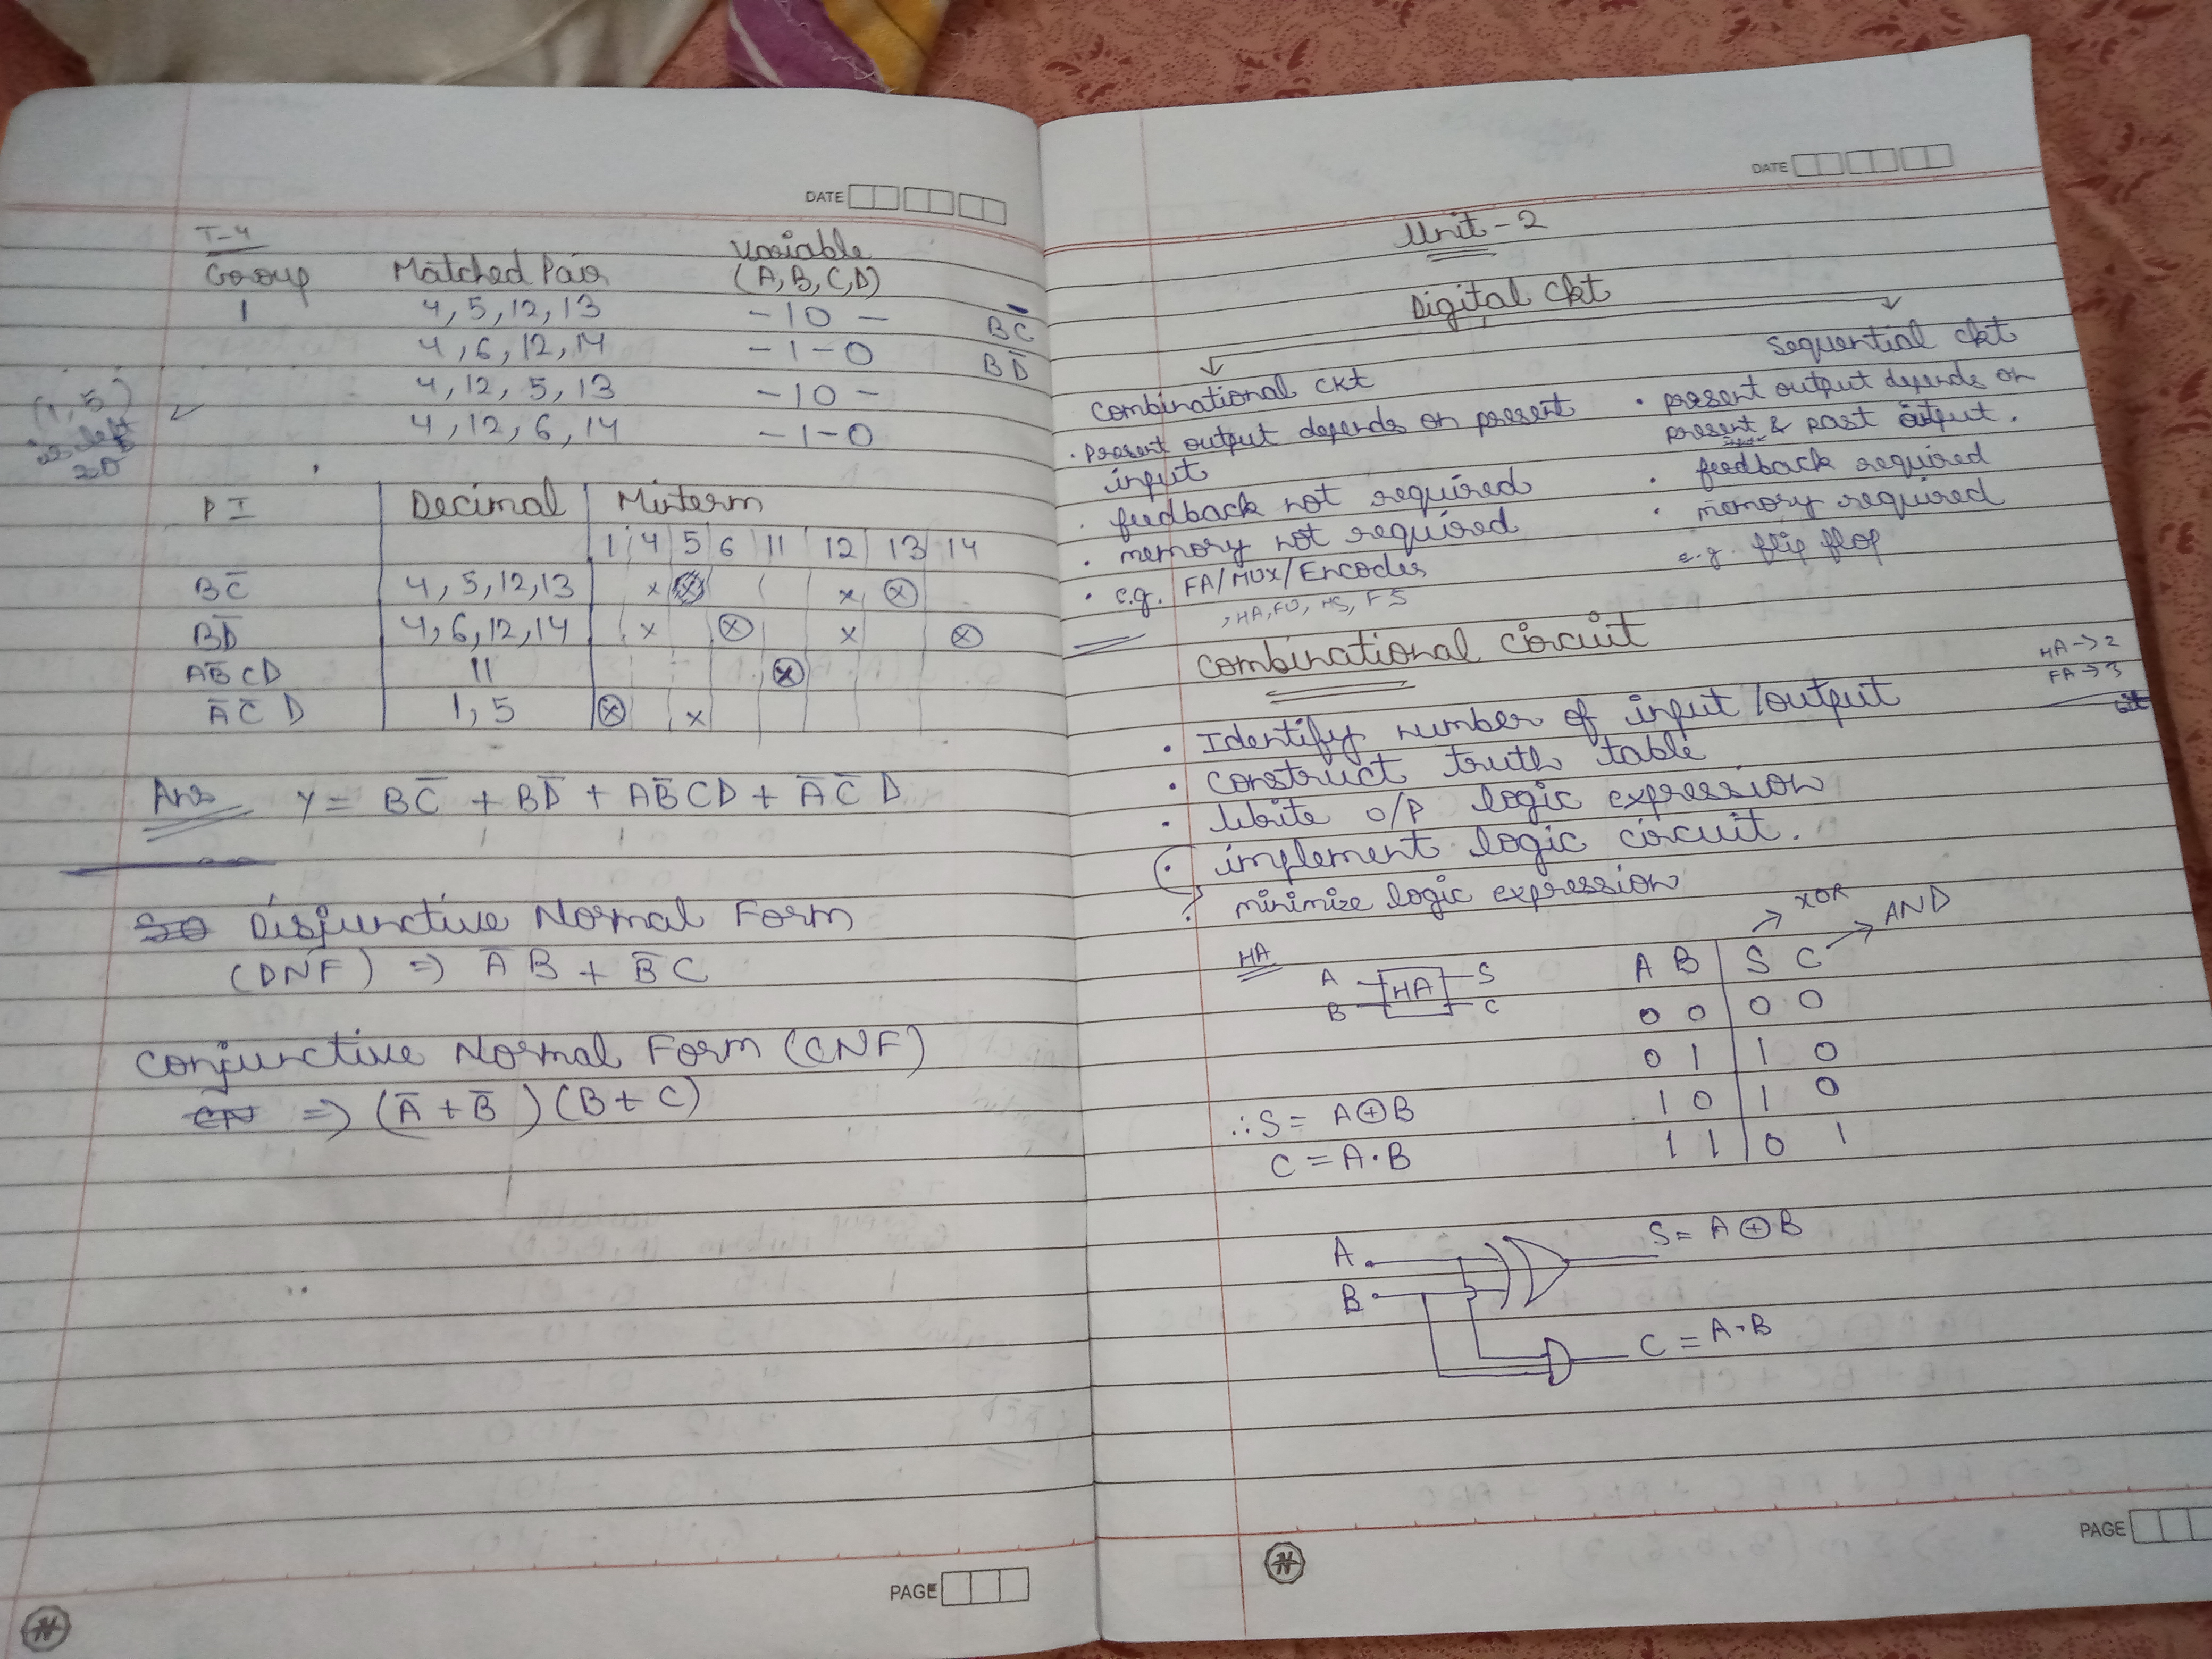 DATE
T-4
Group Matched Pair Variable (A, B, C, D)
1 4, 5, 12, 13 -10- BC̅
4, 6, 12, 14 -1-0 BD̅
4, 12, 5, 13 -10-
4, 12, 6, 14 -1-0
(1, 5)
is left
PI Decimal Minterm
1 4 5 6 11 12 13 14
BC̅ 4, 5, 12, 13 x x ⊗
BD̅ 4, 6, 12, 14 x ⊗ x ⊗
AB̅CD 11 ⊗
A̅C̅D 1, 5 ⊗ x
Ans Y = BC̅ + BD̅ + AB̅CD + A̅C̅D
Disjunctive Normal Form
(DNF) ⇒ A̅B + B̅C
Conjunctive Normal Form (CNF)
⇒ (A̅ + B̅)(B + C)
PAGE
DATE
Unit - 2
Digital ckt
Combinational ckt
• Present output depends on present
input
• feedback not required
• memory not required
• e.g. FA/MUX/Encoder
, HA, FD, HS, FS
Sequential ckt
• present output depends on
present & past output.
• feedback required
• memory required
e.g. flip flop
Combinational circuit
HA → 2
FA → 3
bit
• Identify number of input/output
• construct truth table
• Write o/p logic expression
• implement logic circuit.
minimize logic expression
HA
A B HA S C
→ XOR
→ AND
A B S C
0 0 0 0
0 1 1 0
1 0 1 0
1 1 0 1
∴ S = A⊕B
C = A·B
A
B
S = A⊕B
C = A·B
PAGE